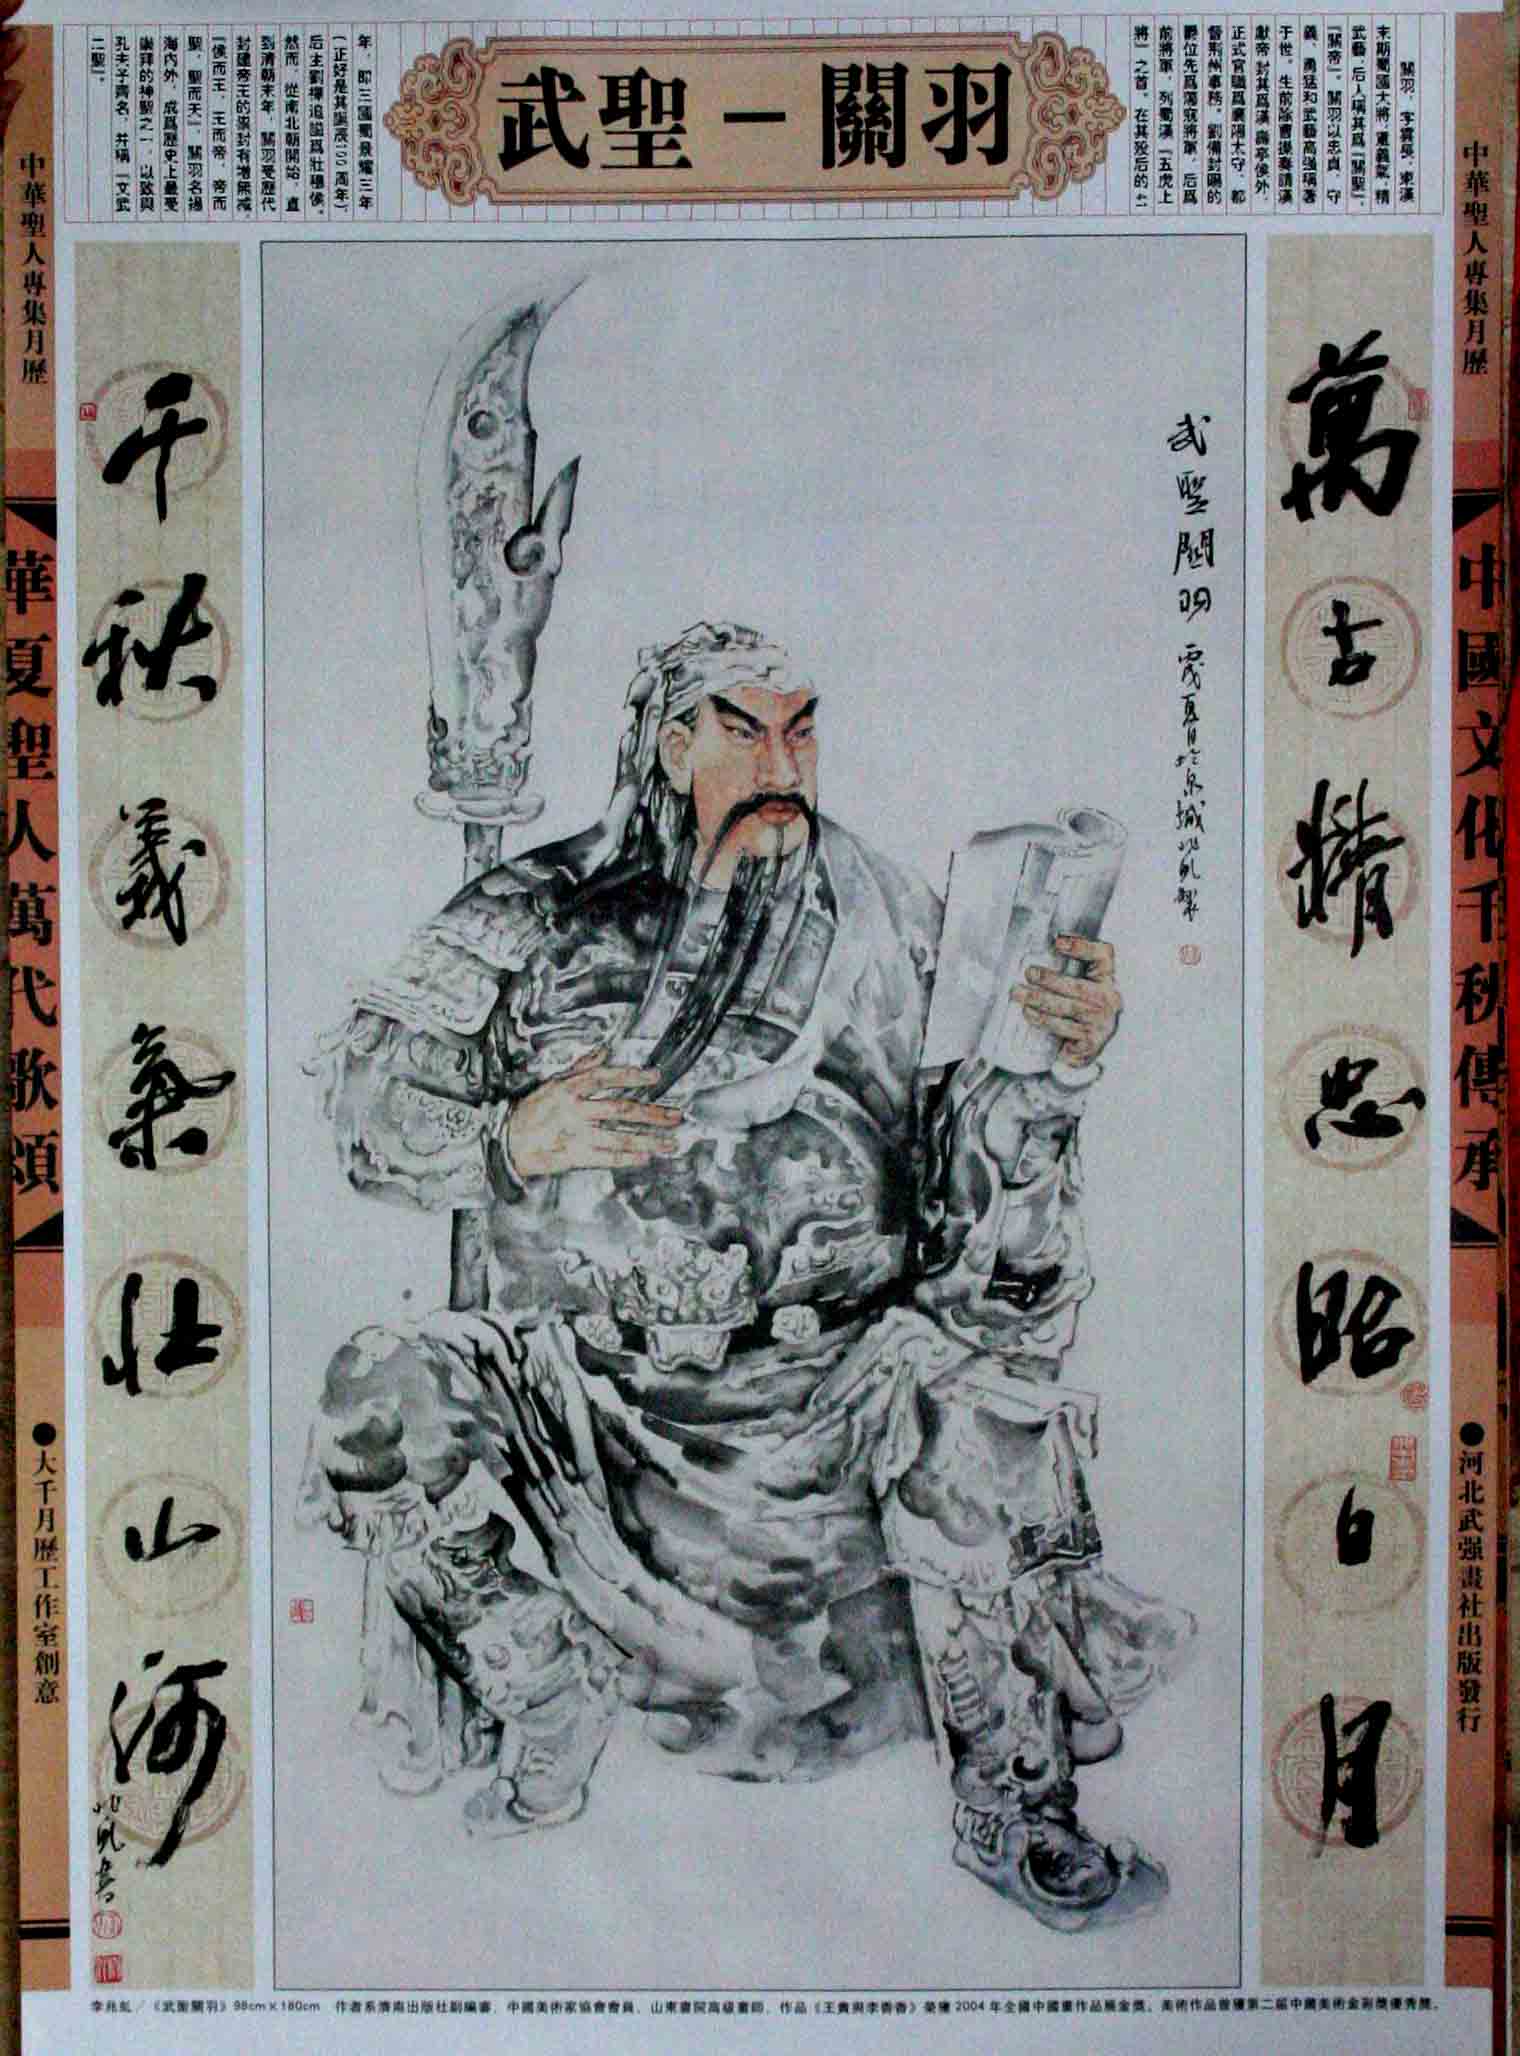 武聖—關羽
關羽，字雲長，東漢
末期蜀國大將，重義氣，精
武藝，后人稱其爲『關聖』、
『關帝』。關羽以忠貞、守
義、勇猛和武藝高強稱著
于世。生前除曹操奏請漢
獻帝封其爲漢壽亭侯外，
正式官職爲襄陽太守、都
督荆州事務。劉備封賜的
爵位先爲蕩寇將軍，后爲
前將軍，列蜀漢『五虎上
將』之首。在其殁后的41
年，即三國蜀景耀三年
(正好是其誕辰100周年)，
后主劉禪追謚爲壯穆侯。
然而，從南北朝開始，直
到清朝末年，關羽受歷代
封建帝王的崇封有增無减
『侯而王，王而帝，帝而
聖，聖而天』，關羽名揚
海内外，成爲歷史上最受
崇拜的神聖之一，以致與
孔夫子齊名，并稱『文武
二聖』。
中華聖人專集月歷
中國文化千秋傳承
●河北武强畫社出版發行
萬古精忠昭日月
武聖關羽
夏日於泉城兆虬
千秋義氣壯山河
兆虬書
中華聖人專集月歷
華夏聖人萬代歌頌
●大千月歷工作室創意
李兆虬／《武聖關羽》98cm×180cm 作者系濟南出版社副編審，中國美術家協會會員，山東書院高級畫師，作品《王貴與李香香》榮獲2004年全國中國畫作品展金獎。美術作品曾獲第二屆中國美術金彩獎優秀獎。